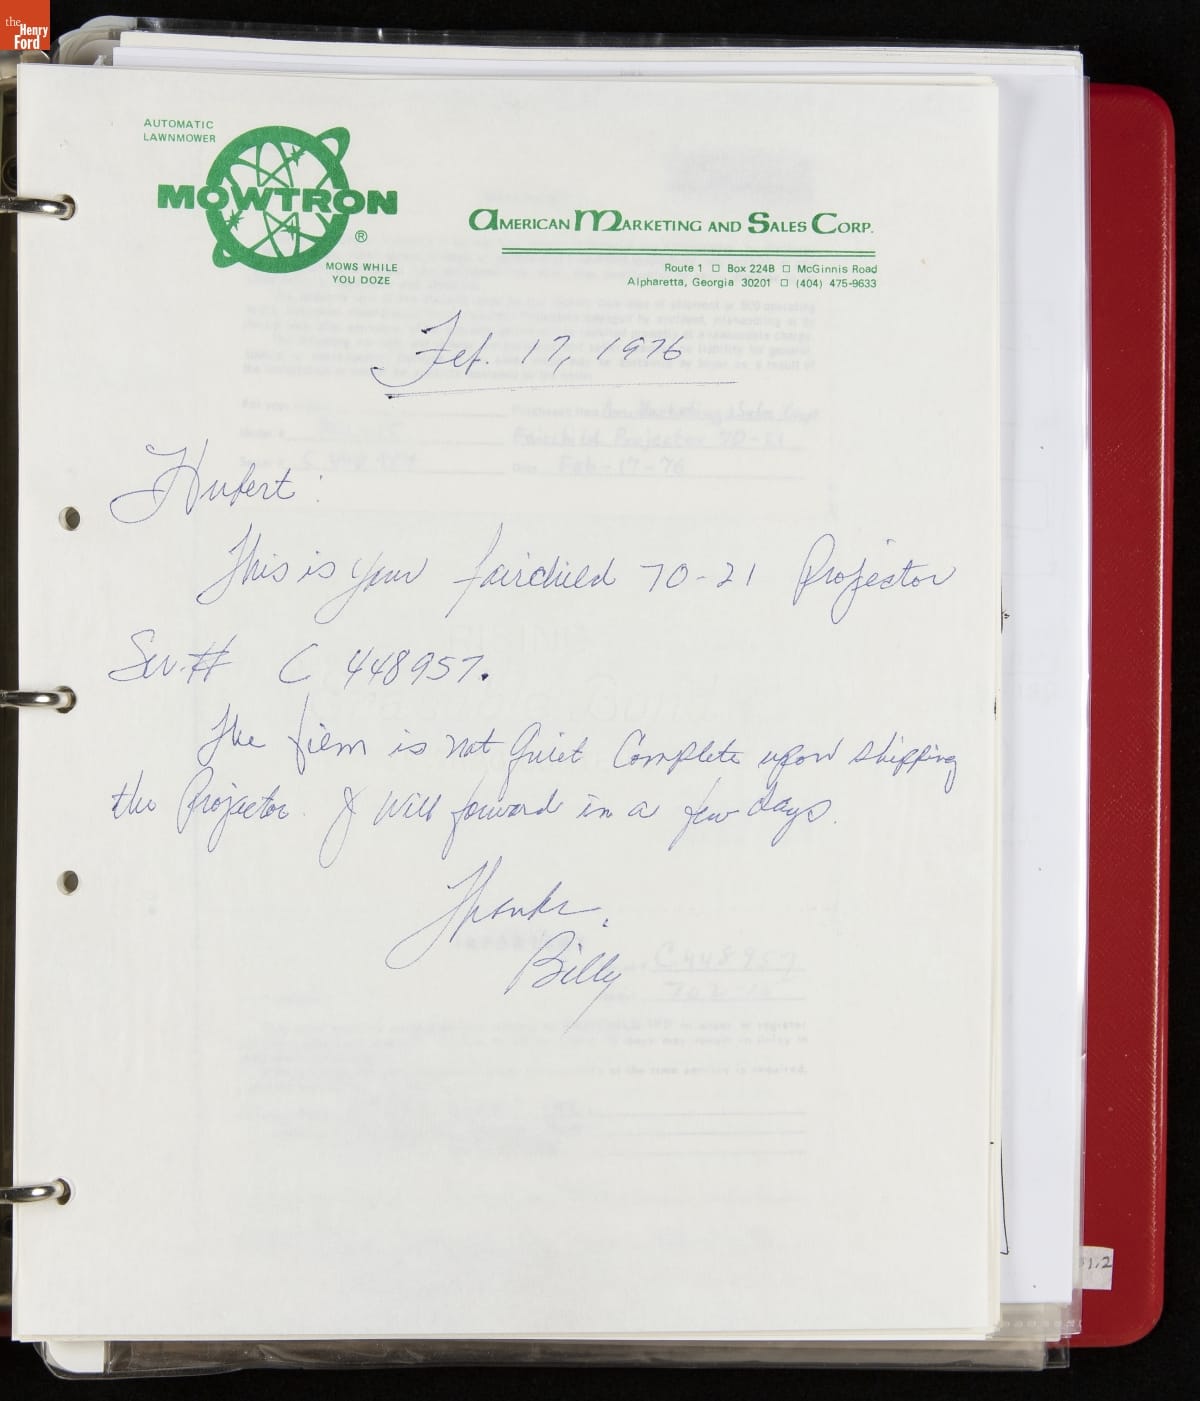 the
Henry
Ford
AUTOMATIC
LAWNMOWER
MOWTRON
®
MOWS WHILE
YOU DOZE
AMERICAN MARKETING AND SALES CORP.
Route 1 □ Box 224B □ McGinnis Road
Alpharetta, Georgia 30201 □ (404) 475-9633
Feb. 17, 1976
Hubert:
This is your fairchild 70-21 Projector
Ser.# C 448957.
The film is not Quiet Complete upon shipping
the Projector. I will forward in a few days.
Thanks,
Billy
Fairchild Projector 70-21
Feb-17-76
C448957